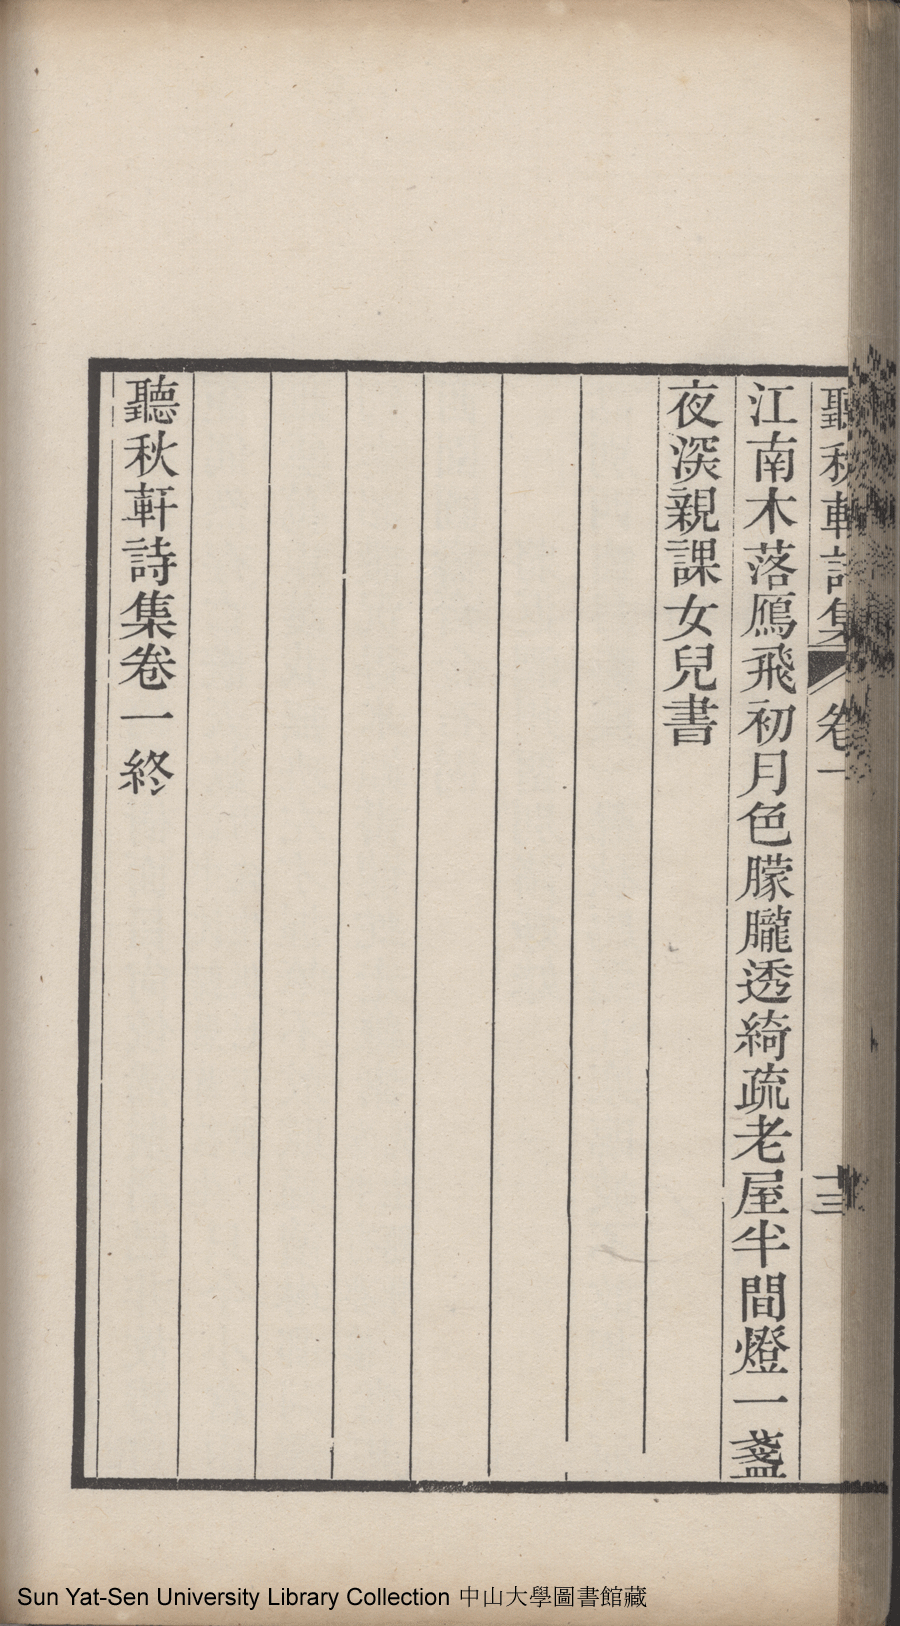 聽秋軒詩集 卷一 十三
江南木落鴈飛初月色朦朧透綺疏老屋半間燈一盞
夜深親課女兒書
聽秋軒詩集卷一終
Sun Yat-Sen University Library Collection 中山大學圖書館藏